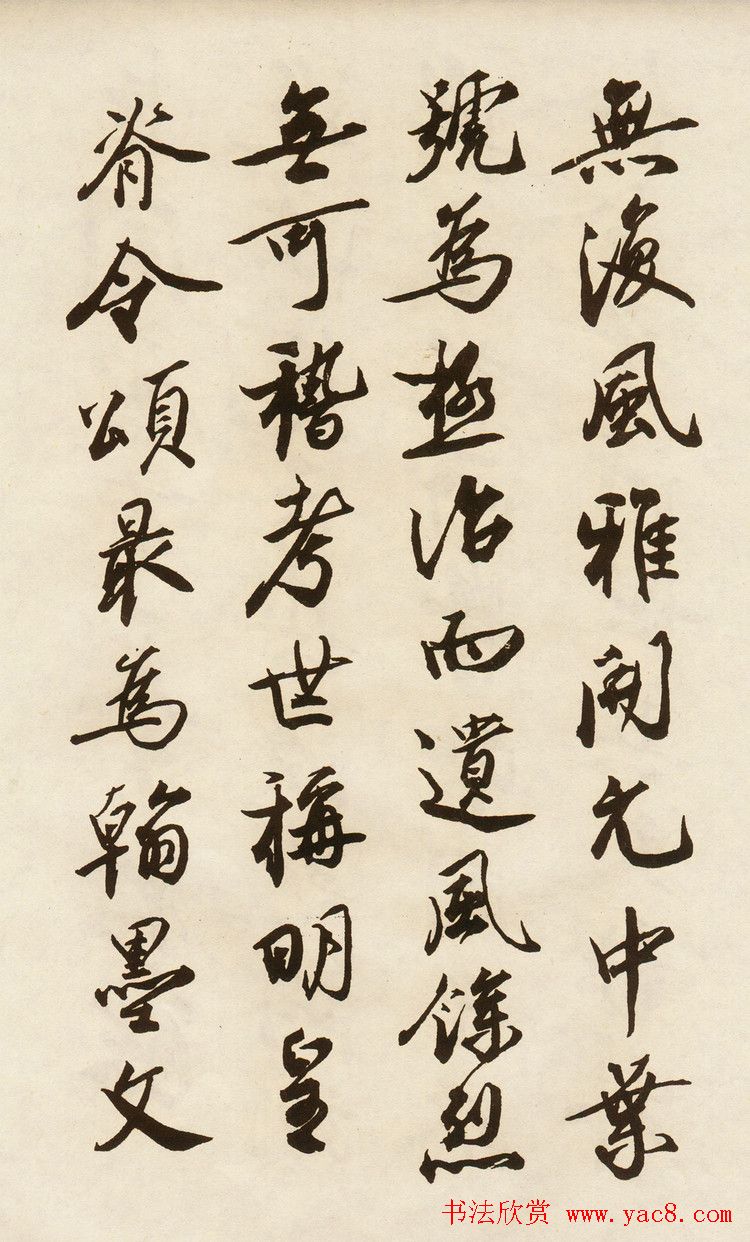 無深風雅開元中葉
號為極治而遺風餘烈
無可稽考世稱明皇
脊令頌最為翰墨文
书法欣赏 www.yac8.com